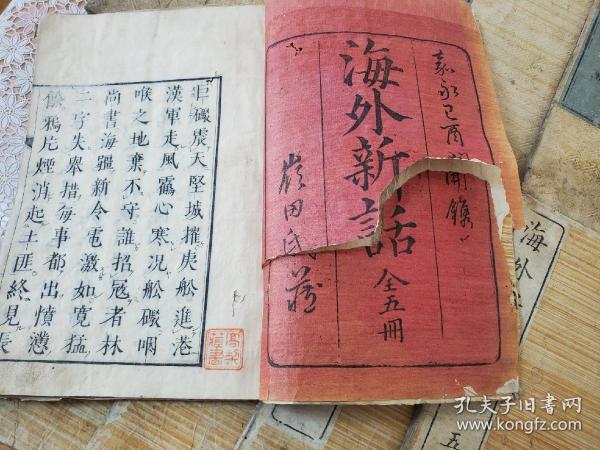 嘉永己酉開鐫
海外新話
全五冊
嶺田氏藏
巨礮震天堅城摧夷舩進港
漢軍走風靄心寒况舩礮咽
喉之地棄不守誰招冦者林
尚書海疆新令電激如寛猛
二字失舉措每事都出憤懣
餘鴉片煙消起土匪終見長
海外
五
孔夫子旧书网
www.kongfz.com